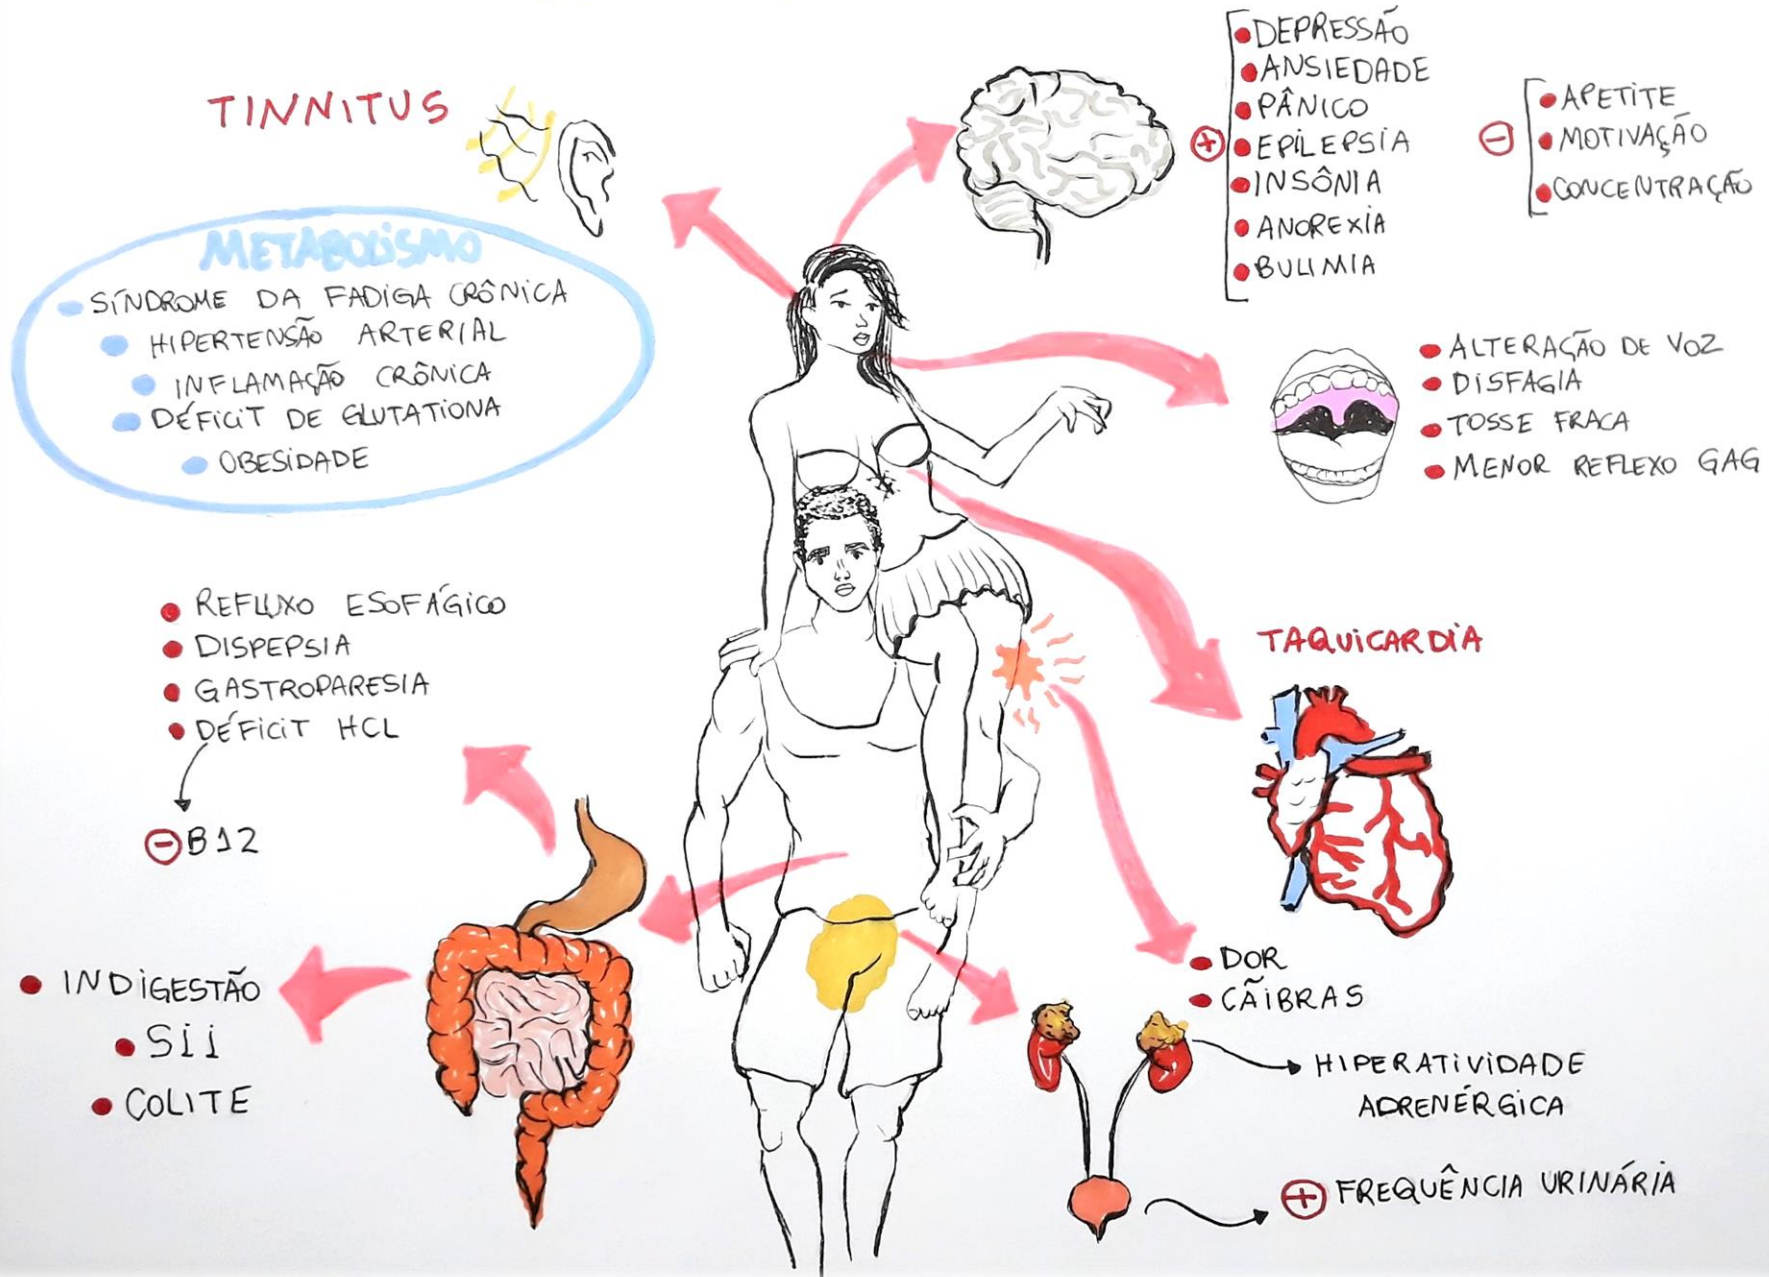 TINNITUS
METABOLISMO
SÍNDROME DA FADIGA CRÔNICA
HIPERTENSÃO ARTERIAL
INFLAMAÇÃO CRÔNICA
DÉFICIT DE GLUTATIONA
OBESIDADE
DEPRESSÃO
ANSIEDADE
PÂNICO
+ EPILEPSIA
INSÔNIA
ANOREXIA
BULIMIA
APETITE
- MOTIVAÇÃO
CONCENTRAÇÃO
ALTERAÇÃO DE VOZ
DISFAGIA
TOSSE FRACA
MENOR REFLEXO GAG
REFLUXO ESOFÁGICO
DISPEPSIA
GASTROPARESIA
DÉFICIT HCL
- B12
TAQUICARDIA
INDIGESTÃO
SII
COLITE
DOR
CÃIBRAS
HIPERATIVIDADE
ADRENÉRGICA
+ FREQUÊNCIA URINÁRIA